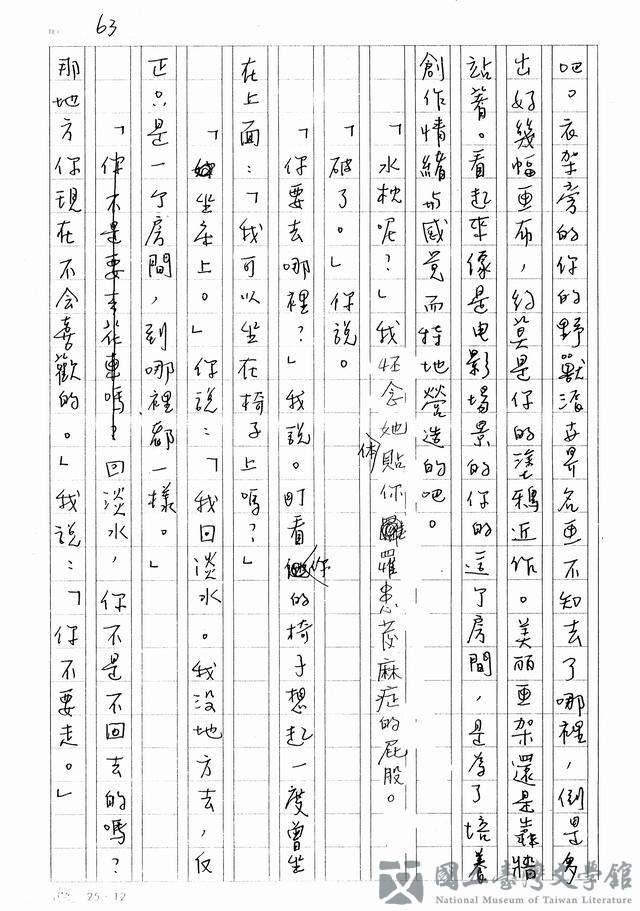 63
吧。衣架旁的你的野獸派世界名畫不知去了哪裡,倒是多
出好幾幅画布,約莫是你的塗鴉近作。美丽画架還是靠牆
站著。看起來像是电影場景的你的這个房間,是為了培養
創作情緒与感覚而特地營造的吧。
「水枕呢?」我怀念她貼你体罹患蕁麻症的屁股。
「破了。」你說。
「你要去哪裡?」我說。盯看你的椅子想起一度曾坐
在上面:「我可以坐在椅子上嗎?」
「坐床上。」你說:「我回淡水。我沒地方去,反
正只是一个房間,到哪裡都一樣。」
「你不是要去花車嗎?回淡水,你不是不回去的嗎?
那地方你現在不会喜歡的。」我說:「你不要走。」
25×12
國立臺灣文學館
National Museum of Taiwan Literature